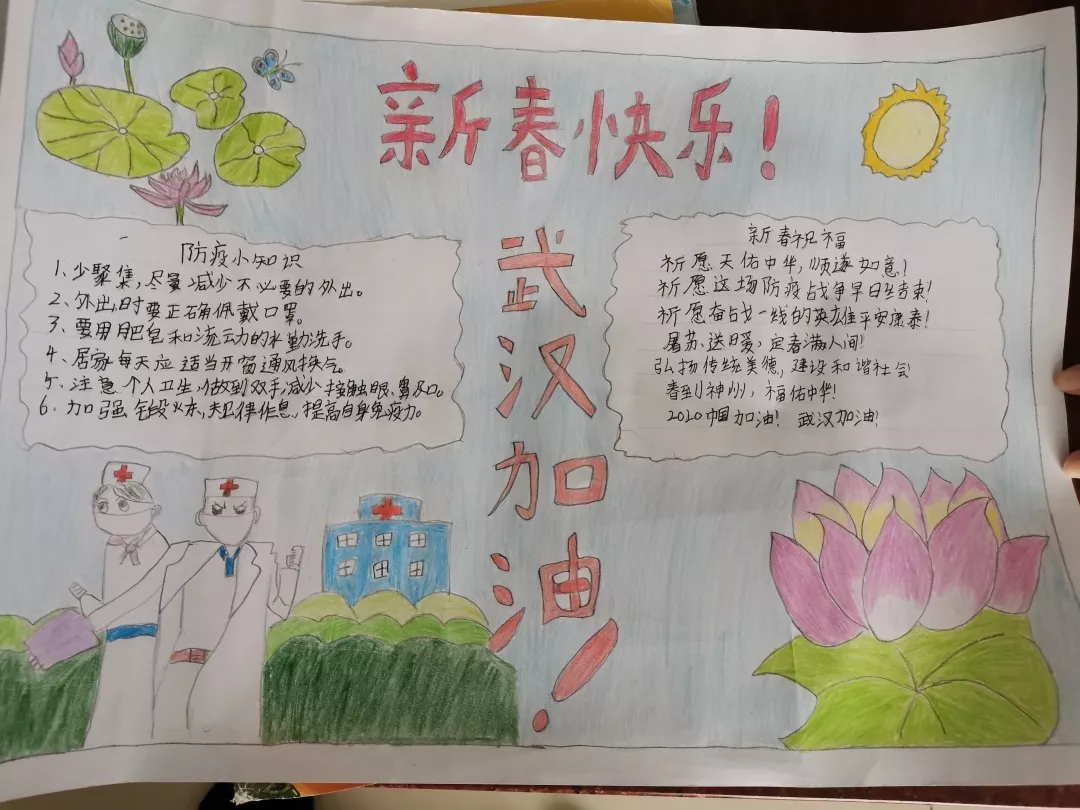 新春快乐！
武汉加油！
防疫小知识
1、少聚集，尽量减少不必要的外出。
2、外出时要正确佩戴口罩。
3、要用肥皂和流动的水勤洗手。
4、居家每天应适当开窗通风换气。
5、注意个人卫生，做到双手减少接触眼、鼻及口。
6、加强锻炼，规律作息，提高自身免疫力。
新春祝福
祈愿天佑中华，顺遂如意！
祈愿这场防疫战争早日结束！
祈愿奋战一线的英雄平安康泰！
屠苏送暖，定春满人间！
弘扬传统美德，建设和谐社会
春到神州，福佑中华！
2020中国加油！ 武汉加油！